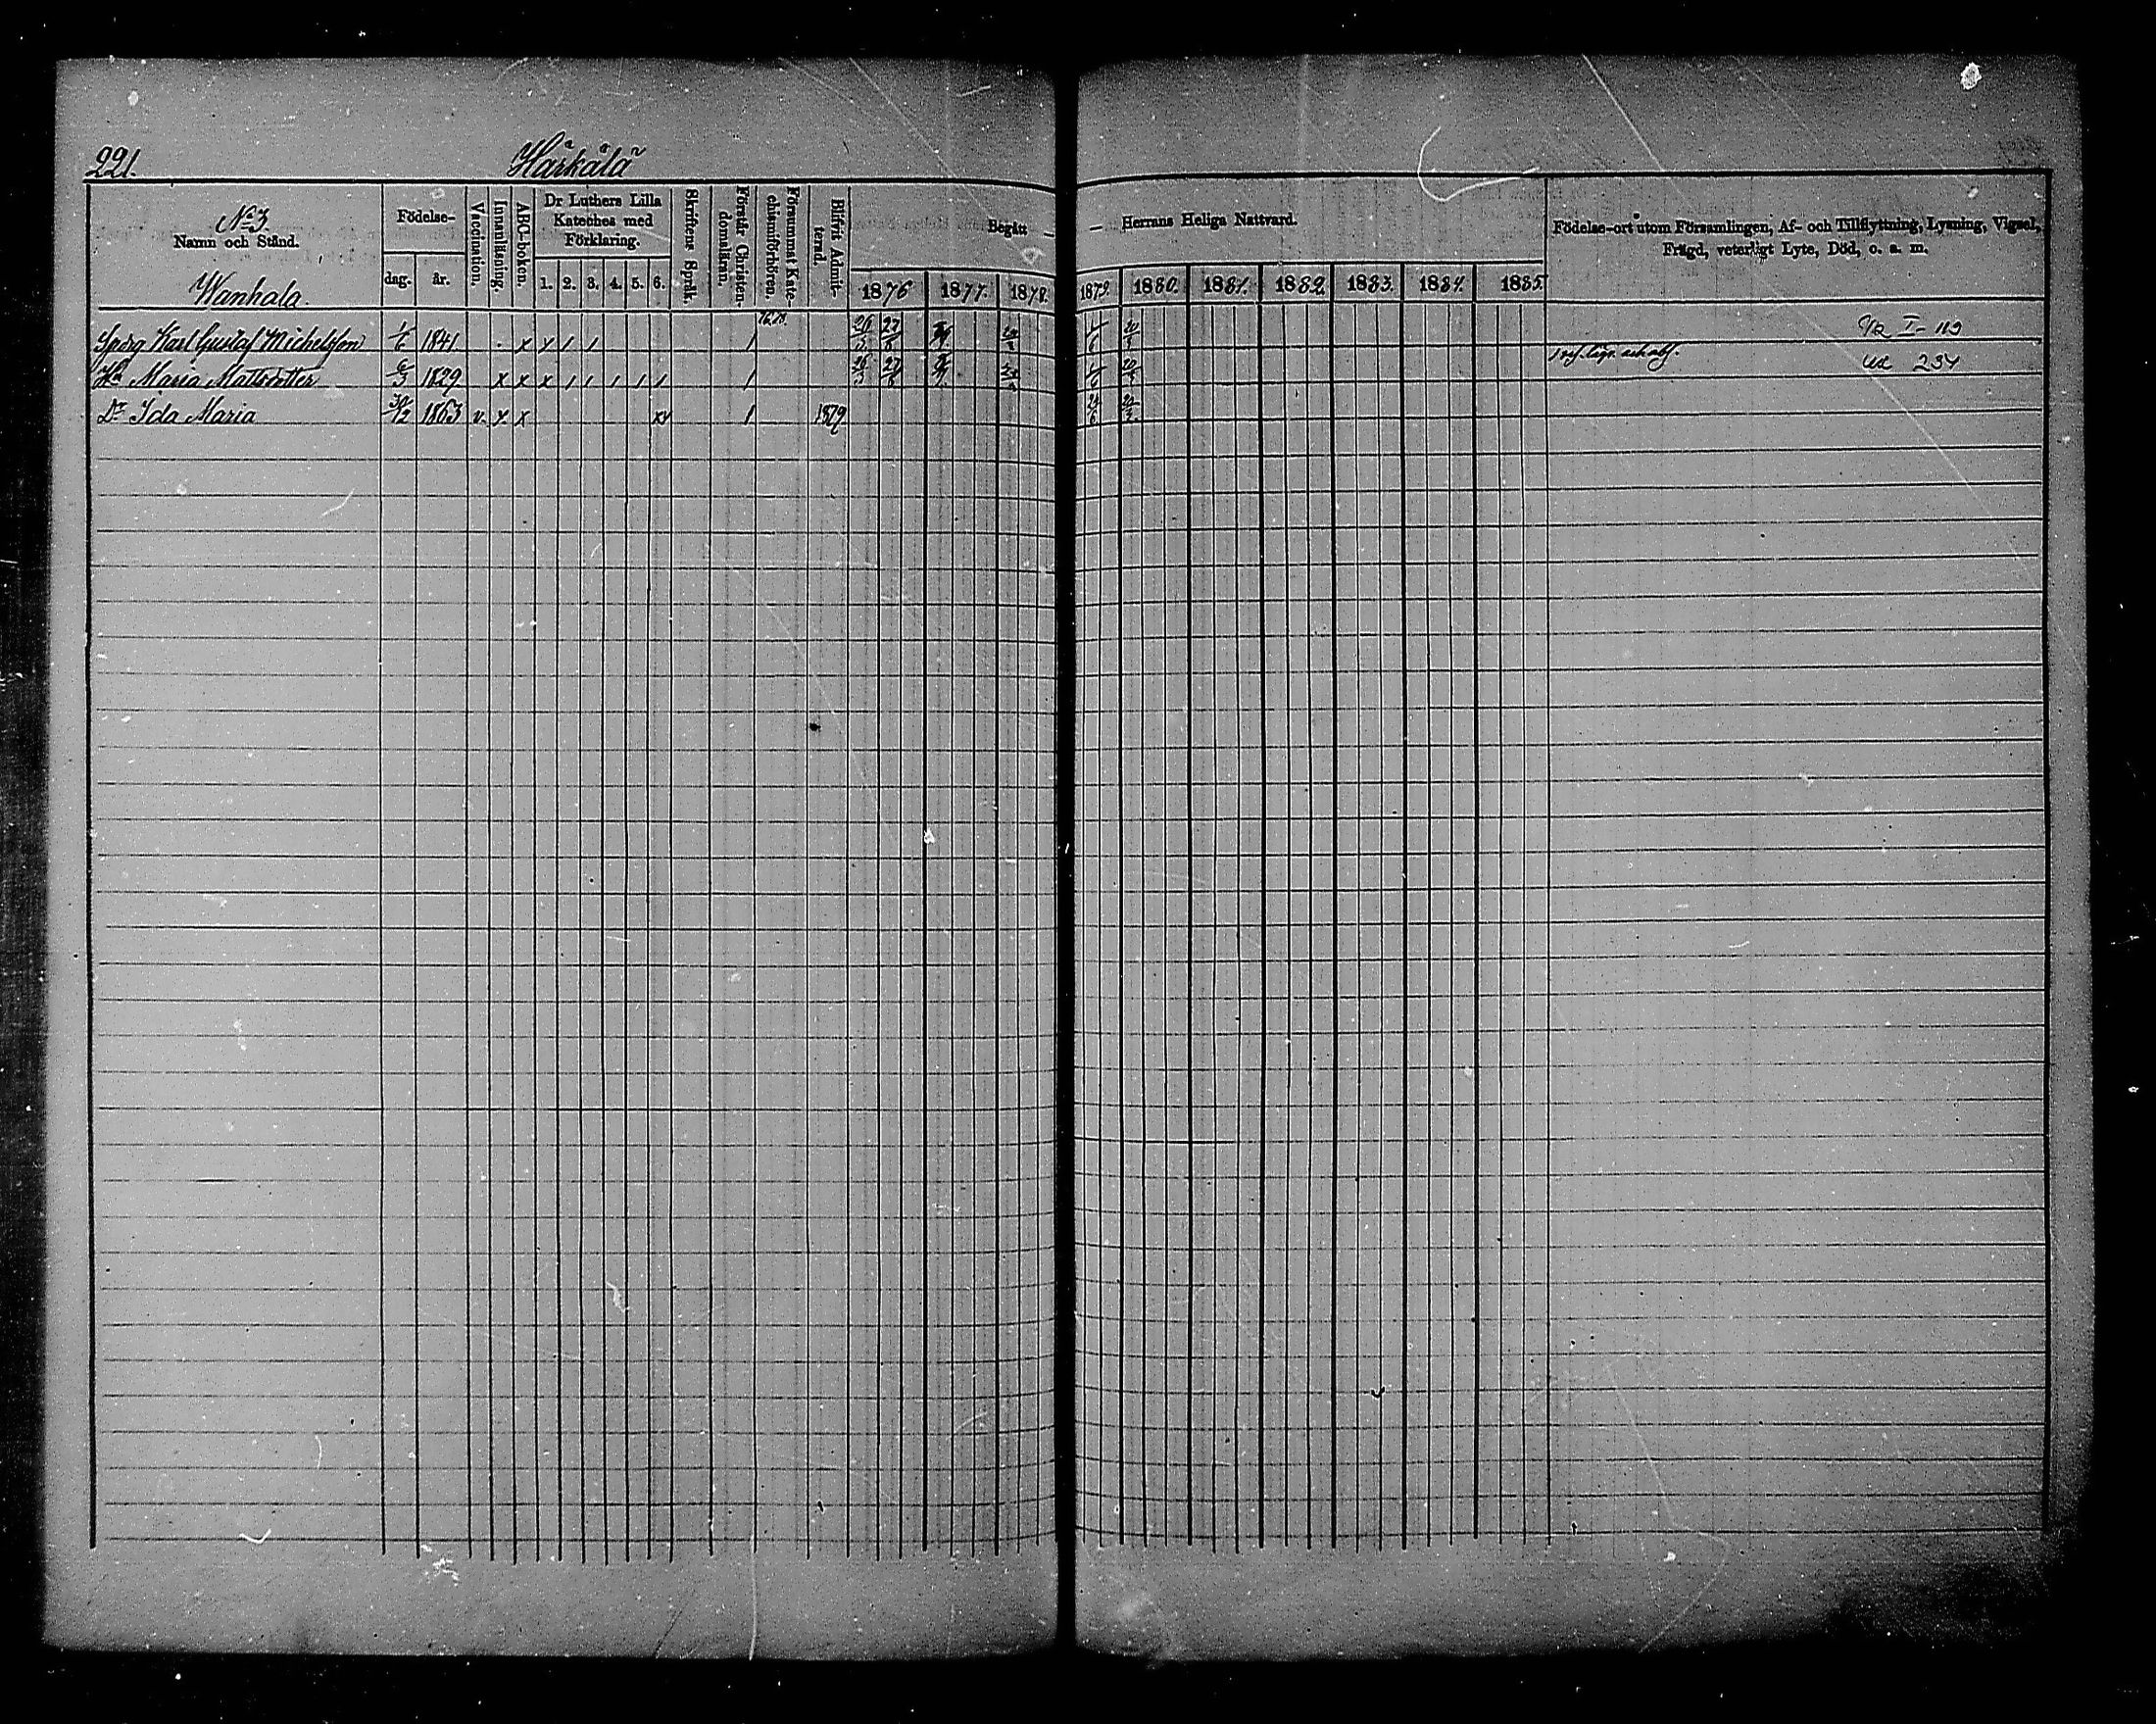 221. Härkälä
No 3.
Namn och Stånd.
Wanhala.
Födelse-
dag. år.
Vaccination.
Innanläsning.
ABC-boken.
Dr Luthers Lilla
Kateches med
Förklaring.
1. 2. 3. 4. 5. 6.
Skriftens Språk.
Förstår Christen-
domsläran.
Försummat Kate-
chismiförhören.
Blifvit Admit-
terad.
Begått — — Herrans Heliga Nattvard.
1876 1877. 1878. 1879. 1880. 1881. 1882. 1883. 1884. 1885.
Födelse-ort utom Församlingen, Af- och Tillflyttning, Lysning, Vigsel,
Frägd, veterligt Lyte, Död, o. s. m.
Karl Gustaf Michelsson 1/6 1841 x x 1 1 1 26/3 27/8 1/6 20/3 I-119
Hu Maria Mattsdotter 6/3 1829 x x x 1 1 1 1 1 1 26/3 27/8 1/6 20/3 och 234
Dr Ida Maria 30/12 1863 v. x x xx 1 1879 24/6